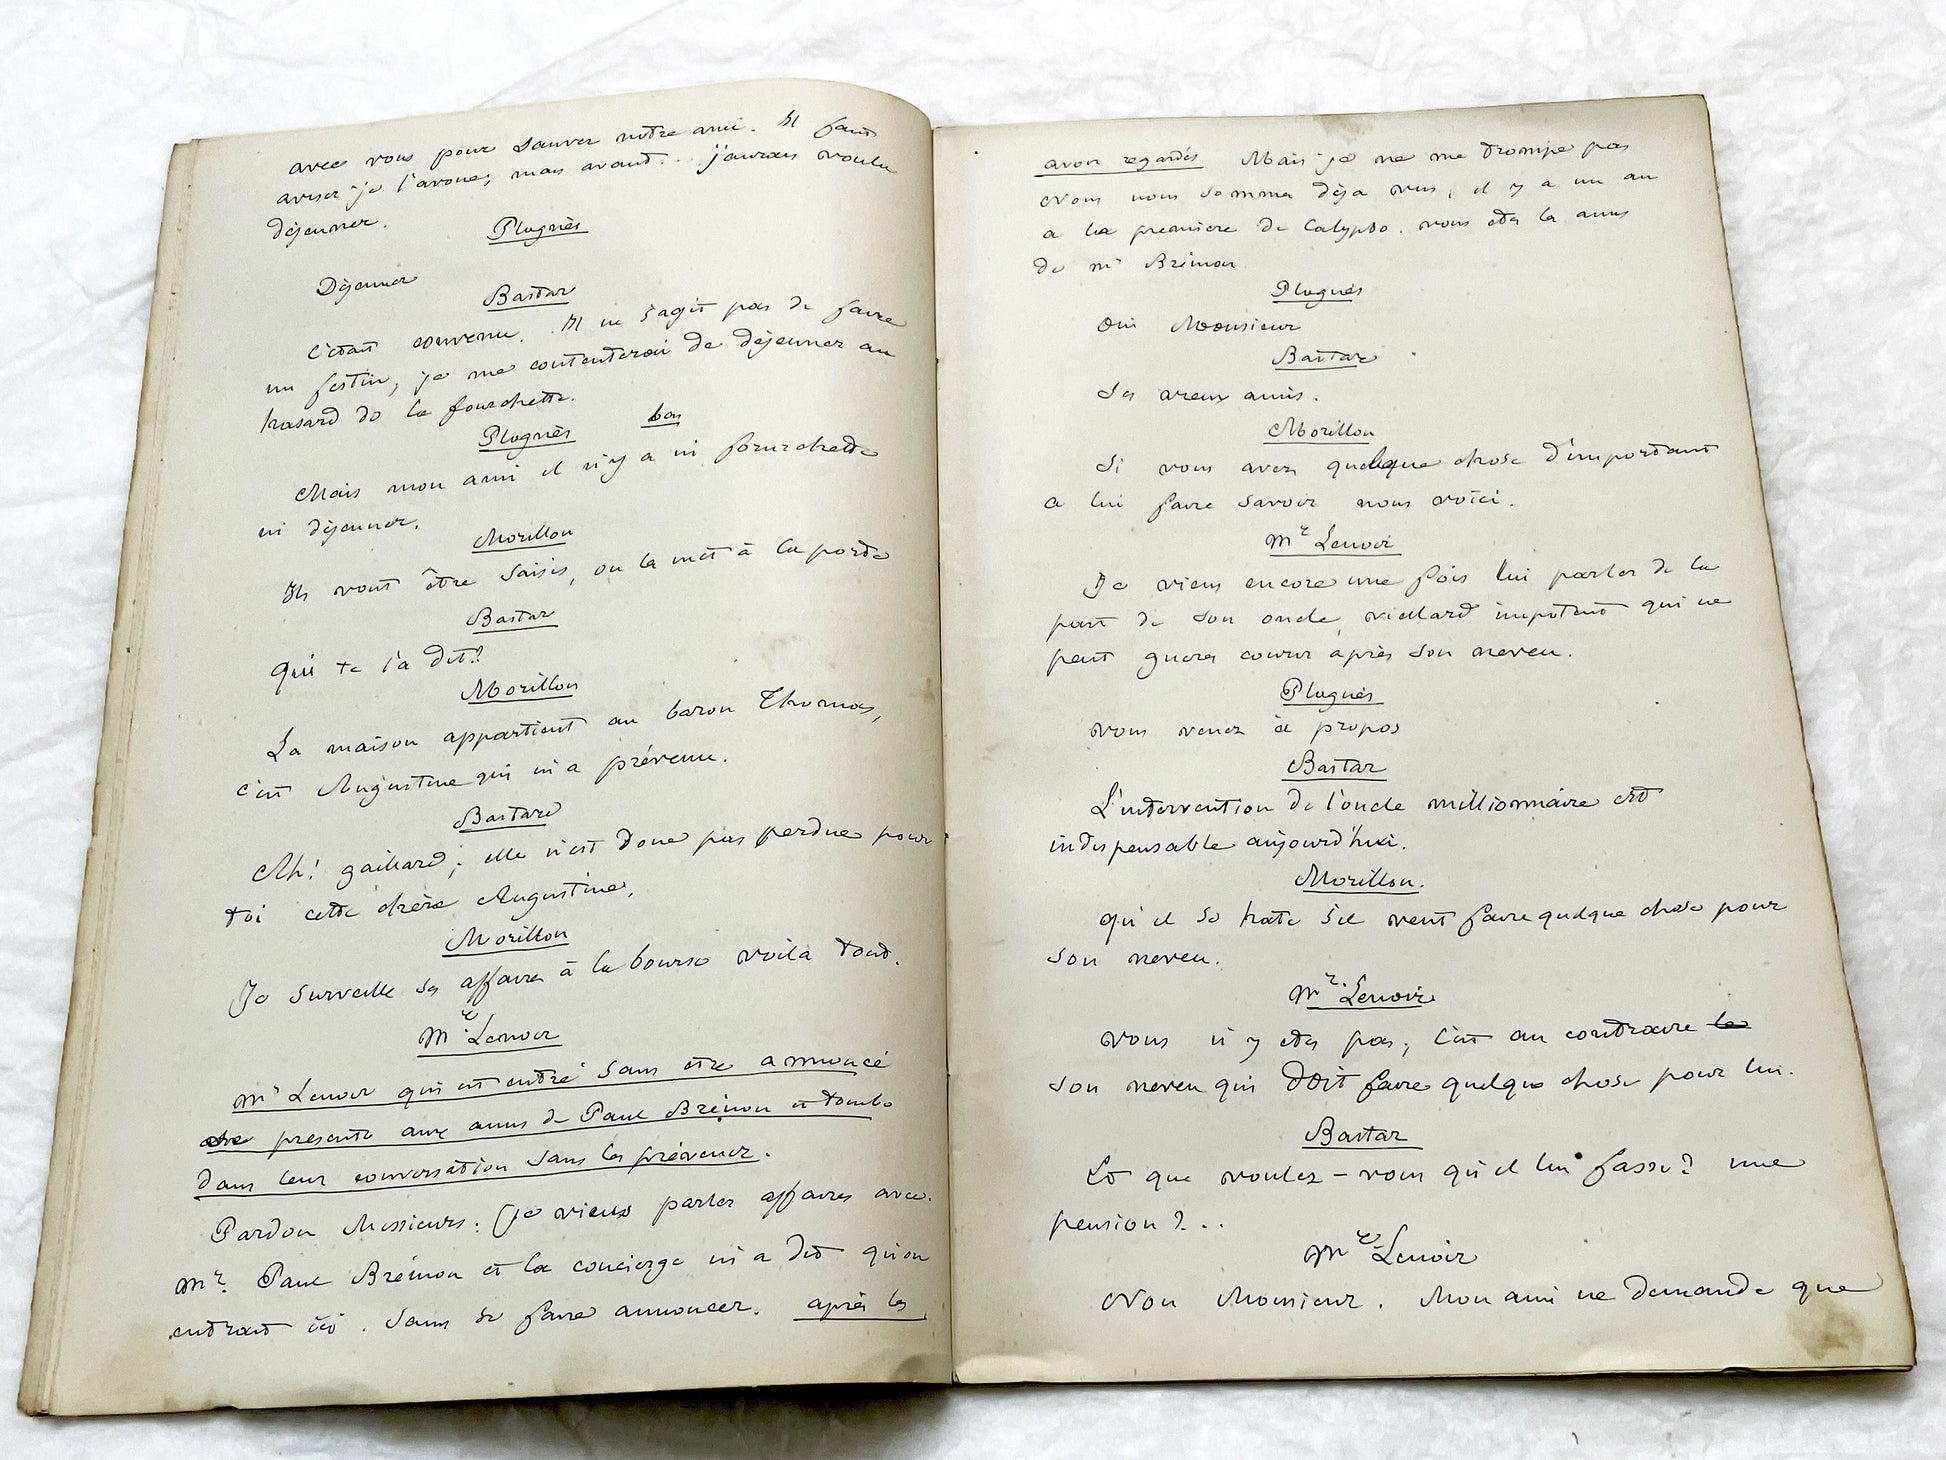 avec vous pour sauver notre ami. Il faut
aviser je l'avoue, mais avant... j'aurais voulu
déjeuner.
Plugnès
Déjeuner
Bastar
C'était convenu. Il ne s'agit pas de faire
un festin, je me contenterai de déjeuner au
hasard de la fourchette.
Plugnès bas
Mais mon ami il n'y a ni fourchette
ni déjeuner.
Morillon
Ils vont être saisis, on la met à la porte
Bastar
Qui te l'a dit?
Morillon
La maison appartient au baron Thomas,
c'est Augustine qui m'a prévenu.
Bastard
Ah! gaillard; elle n'est donc pas perdue pour
toi cette chère Augustine.
Morillon
Je surveille ses affaires à la bourse voila tout.
Mr Lenoir
Mr Lenoir qui est entré sans etre annoncé
presente aux amis de Paul Brémon et tombe
dans leur conversation sans les prévenir.
Pardon Messieurs: Je viens parler affaires avec.
Mr. Paul Brémon et la concierge m'a dit qu'on
entrait ici. Sans se faire annoncer. après les
avoir regardés Mais je ne me trompe pas
Nous nous somme déja vus, il y a un an
a la premiere de Calypso. vous etes la amis
de mr Brémon
Plugnès
Oui Monsieur
Bastar
Ses vieux amis.
Morillon
Si vous avez quelque chose d'important
a lui faire savoir nous voici.
Mr Lenoir
Je viens encore une fois lui parler de la
part de son oncle, vieillard impotent qui ne
peut gueres courir après son neveu.
Plugnès
vous venez à propos
Bastar
L'intervention de l'oncle millionnaire est
indispensable aujourd'hui.
Morillon.
qu'il se hate s'il veut faire quelque chose pour
son neveu.
Mr. Lenoir
Vous n'y etes pas; C'est au contraire le
son neveu qui doit faire quelque chose pour lui.
Bastar
Et que voulez-vous qu'il lui fasse? une
pension?...
Mr Lenoir
Non Monsieur. Mon ami ne demande que